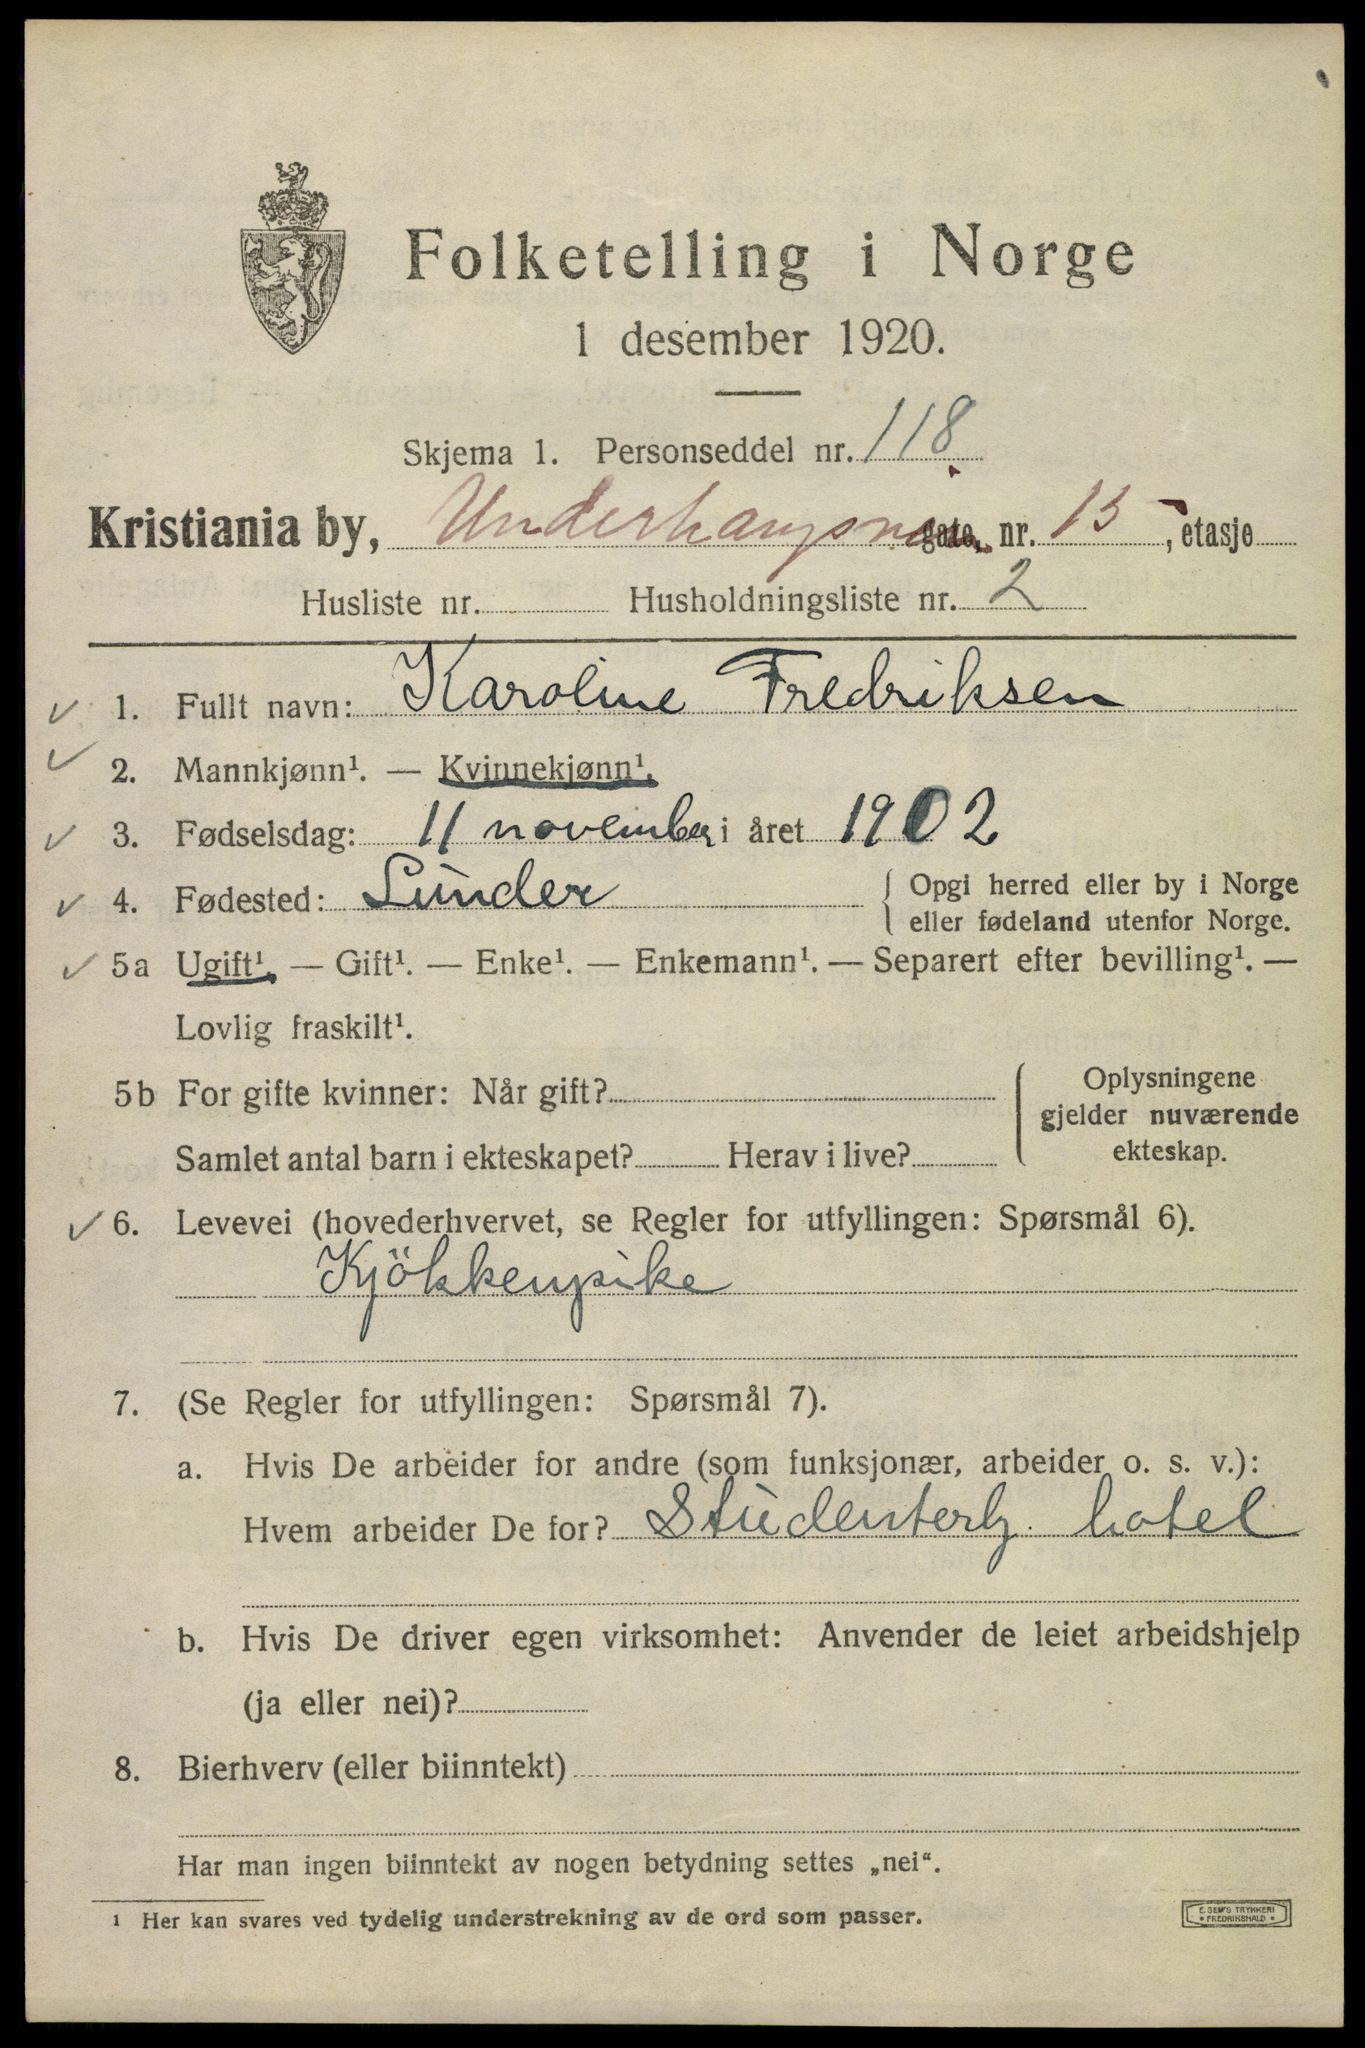 Folketelling i Norge
1 desember 1920.
Skjema 1. Personseddel nr. 118
Kristiania by, Underhaugsveien gate, nr. 15, etasje
Husliste nr. Husholdningsliste nr. 2
1. Fullt navn: Karoline Fredriksen
2. Mannkjønn¹. — Kvinnekjønn¹.
3. Fødselsdag: 11 november i året 1902
4. Fødested: Lunder { Opgi herred eller by i Norge
eller fødeland utenfor Norge.
5a Ugift¹. — Gift¹. — Enke¹. — Enkemann¹. — Separert efter bevilling¹. —
Lovlig fraskilt¹.
5b For gifte kvinner: Når gift? Oplysningene
gjelder nuværende
Samlet antal barn i ekteskapet? Herav i live? ekteskap.
6. Levevei (hovederhvervet, se Regler for utfyllingen: Spørsmål 6).
Kjökkenpike
7. (Se Regler for utfyllingen: Spørsmål 7).
a. Hvis De arbeider for andre (som funksjonær, arbeider o. s. v.):
Hvem arbeider De for? Studenterhj. hotel
b. Hvis De driver egen virksomhet: Anvender de leiet arbeidshjelp
(ja eller nei)?
8. Bierhverv (eller biinntekt)
Har man ingen biinntekt av nogen betydning settes „nei“.
¹ Her kan svares ved tydelig understrekning av de ord som passer.
E. SEM'S TRYKKERI
* FREDRIKSHALD *